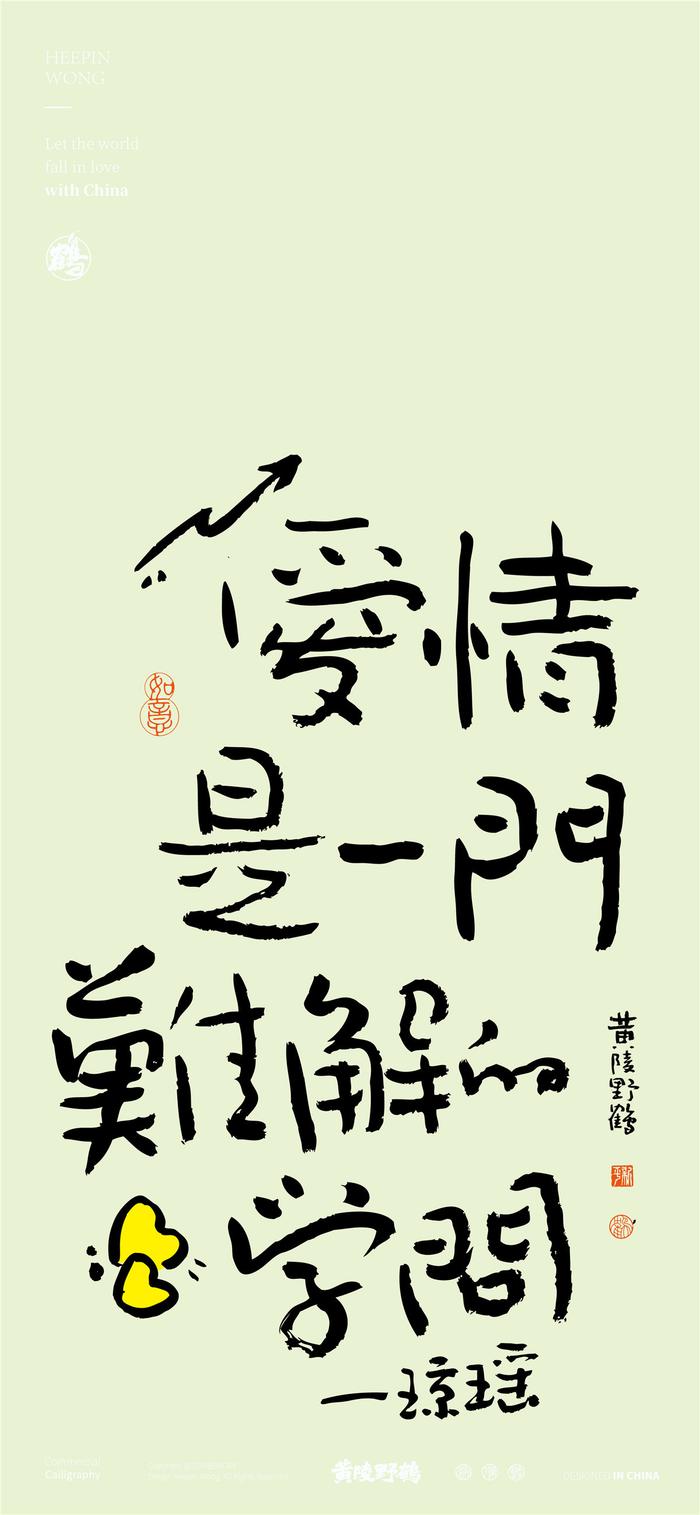 HEEPIN
WONG
Let the world
fall in love
with China
鹤
愛情
如意
是一門
難解的
学問
一琼瑶
黄陵野鹤
Commercial
Calligraphy
黄陵野鹤
DESIGNED IN CHINA